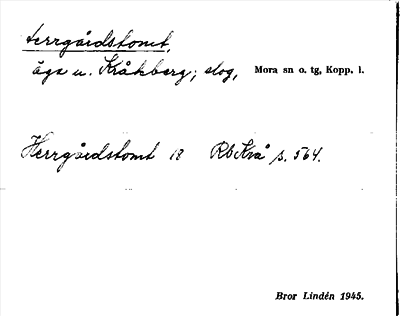 Herrgårdstomt,
äga u. Kråkberg; skog, Mora sn o. tg, Kopp. l.
Herrgårdstomt 18 RbKrå s. 564.
Bror Lindén 1945.